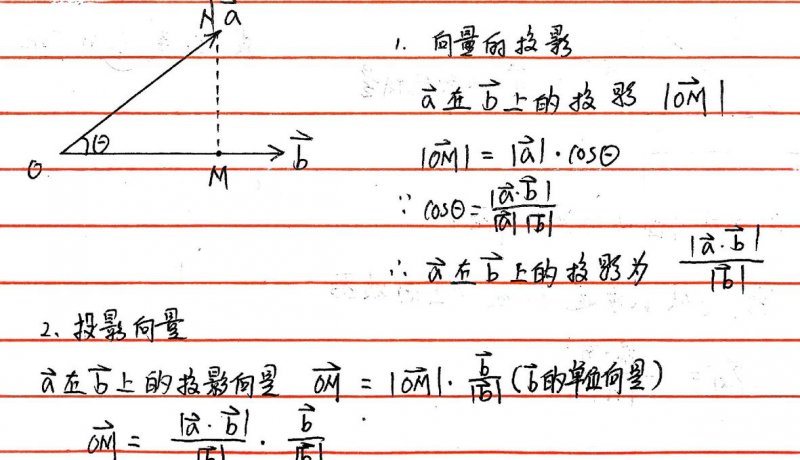 N \vec{a}
θ
O
M
\vec{b}
1. 向量的投影
\vec{a}在\vec{b}上的投影 |\vec{OM}|
|\vec{OM}| = |\vec{a}|·cosθ
∵ cosθ = \frac{|\vec{a}·\vec{b}|}{|\vec{a}||\vec{b}|}
∴ \vec{a}在\vec{b}上的投影为 \frac{|\vec{a}·\vec{b}|}{|\vec{b}|}
2、投影向量
\vec{a}在\vec{b}上的投影向量 \vec{OM} = |\vec{OM}|·\frac{\vec{b}}{|\vec{b}|}(\vec{b}的单位向量)
\vec{OM} = \frac{|\vec{a}·\vec{b}|}{|\vec{b}|}·\frac{\vec{b}}{|\vec{b}|}